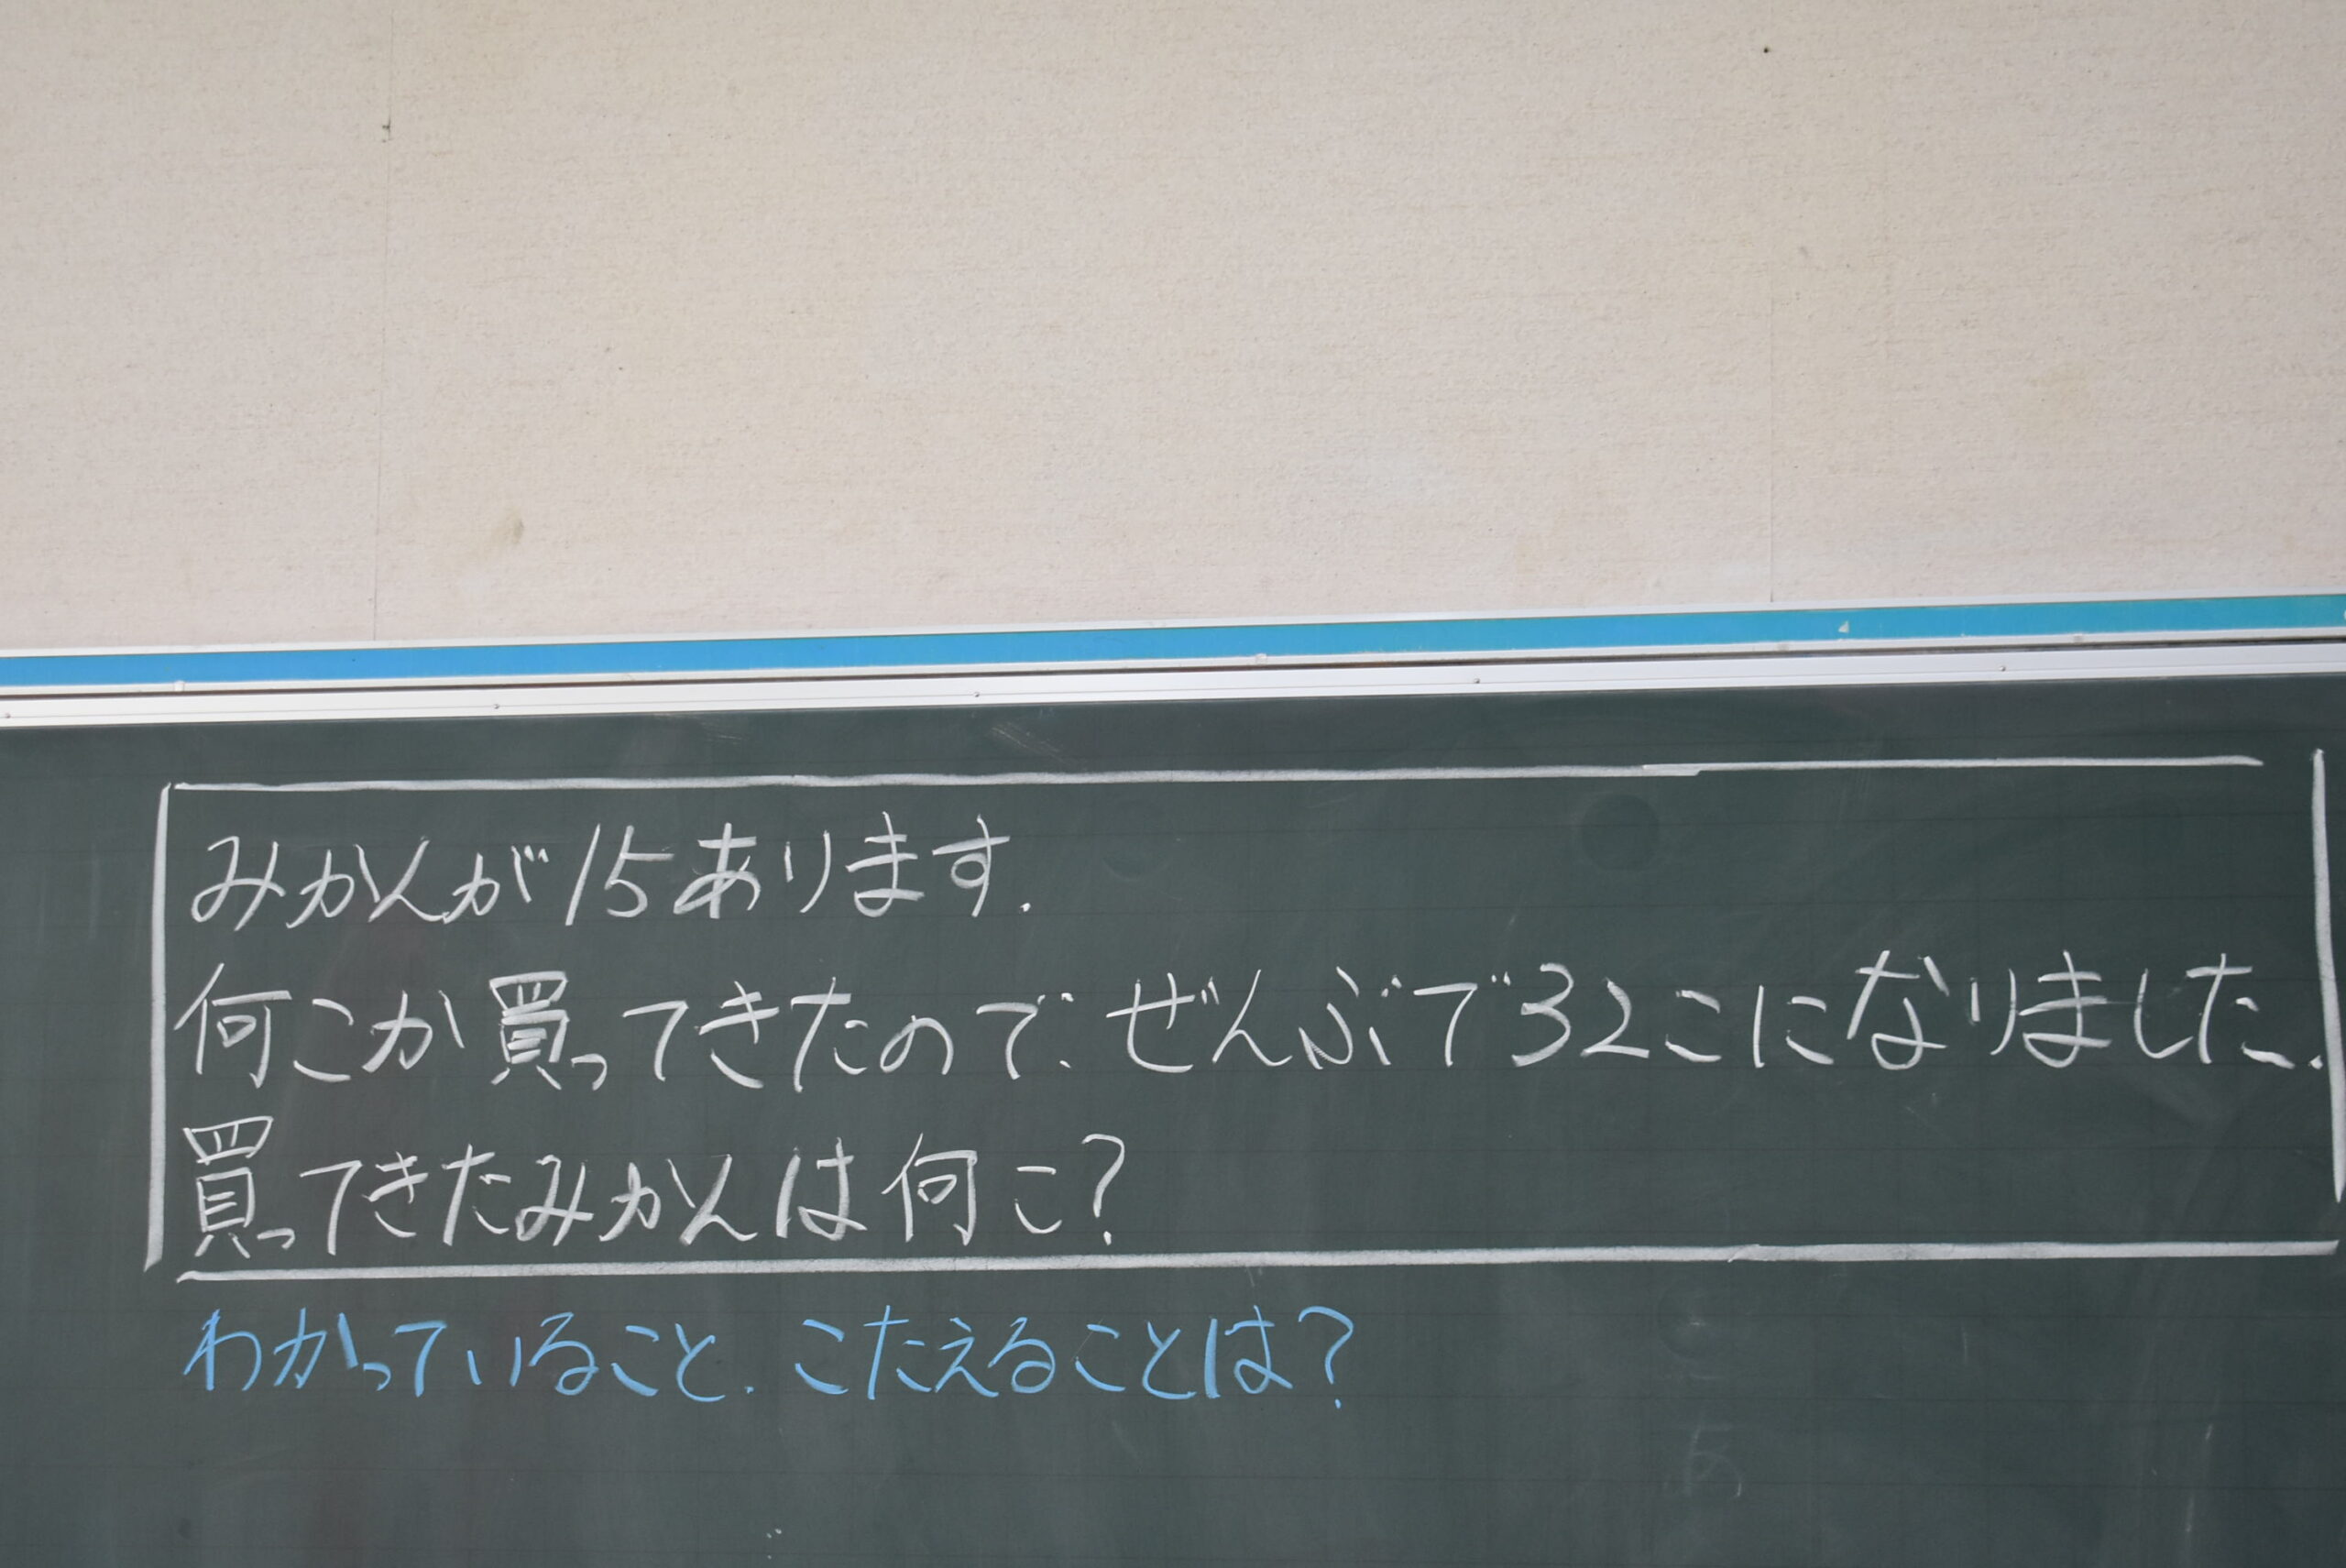 みかんが15あります.
何こか買ってきたので、ぜんぶで32こになりました.
買ってきたみかんは何こ?
わかっていること、こたえることは?